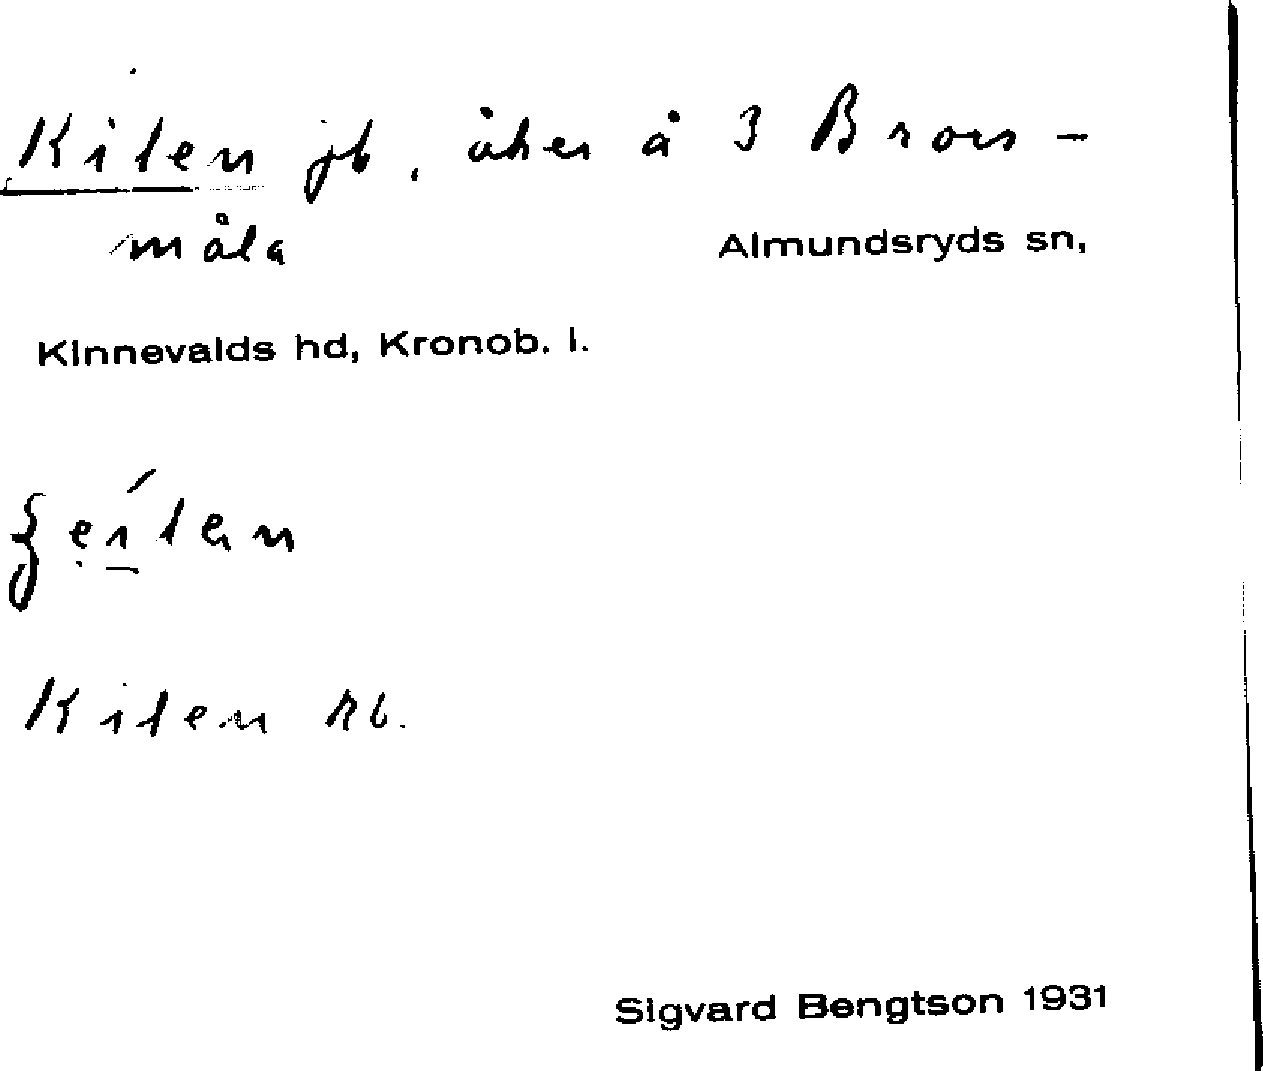 Kilen jb, åker å 3 Brons-
måla
Almundsryds sn,
Kinnevalds hd, Kronob. l.
Kilen rb.
Sigvard Bengtson 1931